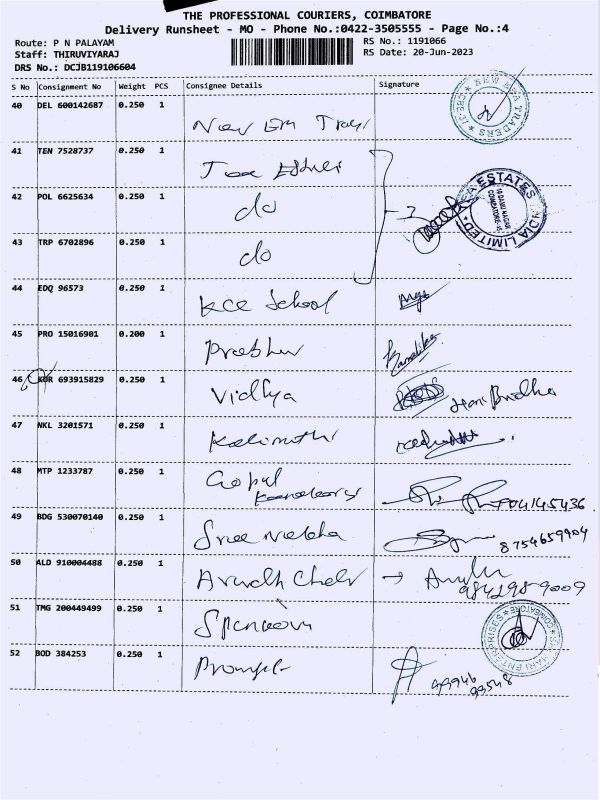 THE PROFESSIONAL COURIERS, COIMBATORE
Delivery Runsheet - MO - Phone No.:0422-3505555 - Page No.:4
Route: P N PALAYAM
RS No.: 1191066
Staff: THIRUVIYARAJ
RS Date: 20-Jun-2023
DRS No.: DCJB119106604
S No Consignment No Weight PCS Consignee Details Signature
40 DEL 600142687 0.250 1
New
TRADERS
41 TEN 7528737 0.250 1
42 POL 6625634 0.250 1 do
ESTATES INDIA LIMITED
43 TRP 6702896 0.250 1 do
44 EDQ 96573 0.250 1 KCE School
45 PRO 15016901 0.200 1 Prabhu
46 KUR 693915829 0.250 1 Vidhya
47 NKL 3201571 0.250 1
48 MTP 1233787 0.250 1 Gopal
49 BDG 530070140 0.250 1 Sree
8754659904
50 ALD 910004488 0.250 1
984298-9009
51 TMG 200449499 0.250 1
ENTERPRISES COIMBATORE
52 BOD 384253 0.250 1
99946
99548